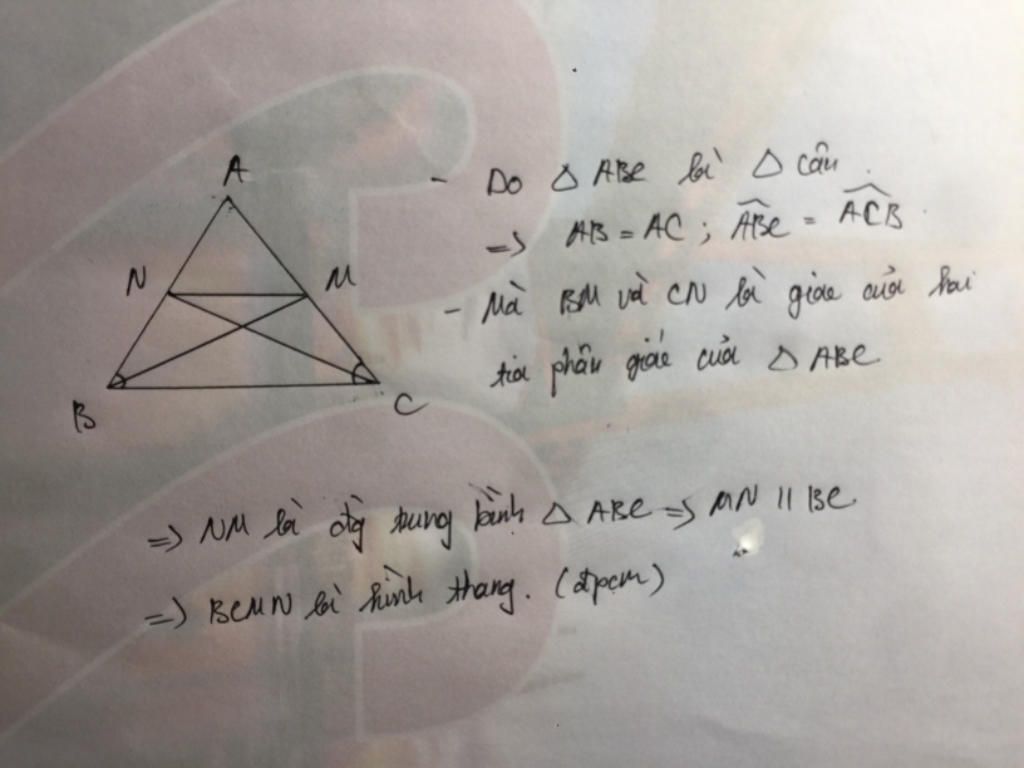 A
N
M
B
C
- Do △ ABC là △ cân.
=> AB = AC ; ABC = ACB.
- Mà BM và CN là giao của hai
tia phân giác của △ ABC
=> NM là đg trung bình △ ABC => MN // BC
=> BCMN là hình thang. (đpcm)